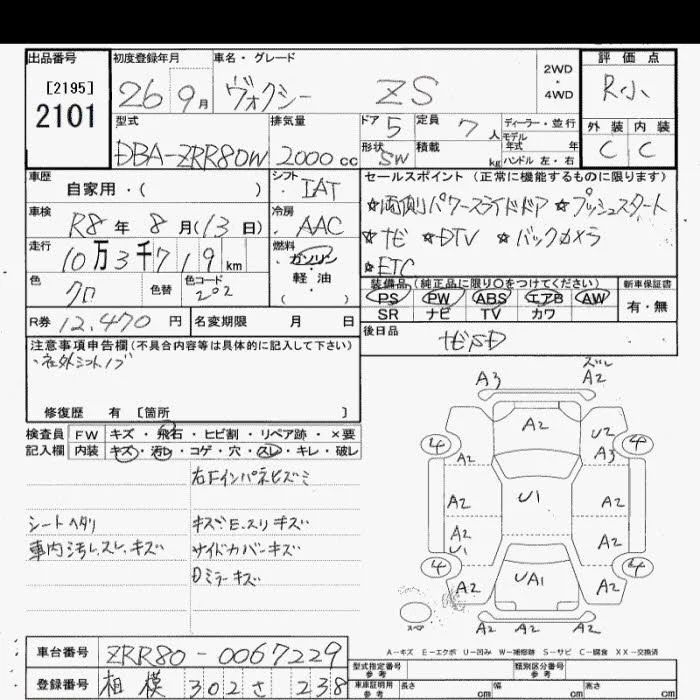 出品番号 初度登録年月 車名・グレード 2WD・4WD 評価点
[2195]
2101
26 9月 ヴォクシー ZS R小
型式 排気量 ドア 5 定員 7人 ディーラー・並行 外装 内装
モデル年式 年
DBA-ZRR80W 2000cc 形状 SW 積載 kg ハンドル 左・右 C C
車歴 シフト セールスポイント(正常に機能するものに限ります)
自家用・( ) IAT
☆両側パワースライドドア ☆プッシュスタート
車検 R8年8月(13日) 冷房 AAC
☆ナビ ☆DTV ☆バックカメラ
走行 10万3千719km 燃料 ガソリン・軽油・( )
☆ETC
色 クロ 色替 色コード 202
装備品(純正品に限り〇をつけてください) 新車保証書
PS PW ABS エアB AW 有・無
SR ナビ TV カワ
R券 12,470円 名変期限 月 日
後日品 ナビSD
注意事項申告欄(不具合内容等は具体的に記入して下さい)
・社外シフトノブ
修復歴 有 [箇所 ]
検査員 FW キズ・飛石・ヒビ割・リペア跡・×要
記入欄 内装 キズ・汚レ・コゲ・穴・スレ・キレ・破レ
右Fインパネヒズミ
シートヘタリ キズ.E.スリキズ
車内汚レ.スレ.キズ サイドカバーキズ
Dミラーキズ
ズレ
A3 A2
A2
4 U2 4
A2 A3
A2 U1 A2
A2
U1 A2
4 4
A2 UA1 A2
スペア A2
A-キズ E-エクボ U-凹み W-補修跡 S-サビ C-腐食 XX-交換済
車台番号 ZRR80-0067229
型式指定番号 参考 類別区分番号 参考
登録番号 相模 302 さ 238
車庫証明用 参考 長さ cm 幅 cm 高さ cm